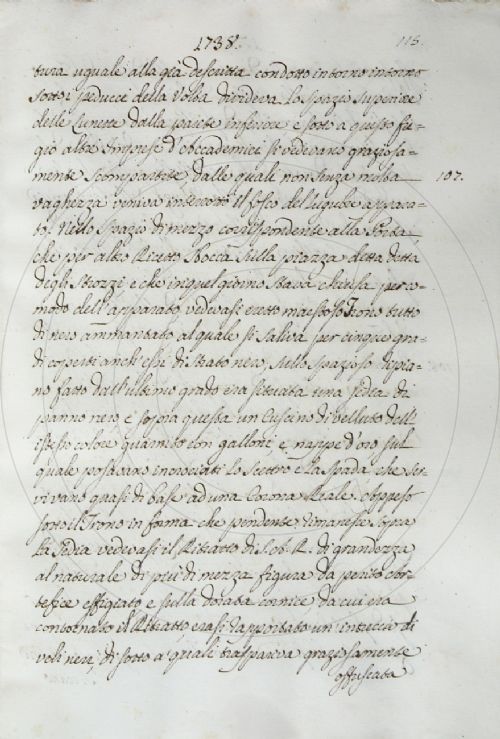 1738.
113.
tura uguale alla già descritta condotto intorno intorno
sotto i peducci della Volta divideva lo spazio superiore
delle Lunette dalla parete inferiore e sotto a questo fre-
gio altre Imprese d'Accademici si vedevano graziosa-
mente scompartite, dalle quali non senza molta
107.
vaghezza veniva interrotto il fosco del lugubre appara-
to. Nello spazio di mezzo corrispondente alla Porta
che per altro Ricetto sbocca sulla piazza detta
degli Strozzi, e che in quel giorno stava chiusa per co-
modo dell'apparato vedevasi eretto maestoso Trono tutto
di nero ammantato al quale si saliva per cinque gra-
di coperti anch'essi di strato nero, sullo spazioso ripia-
no fatto dall'ultimo grado era situata una sedia di
panno nero e sopra questa un Cuscino di velluto dell'
istesso colore guarnito con galloni, e nappe d'oro sul
quale posavano incrociati lo Scettro e la Spada che ser-
vivano quasi di base ad una Corona Reale. Appeso
sotto il Trono in forma che pendente rimanesse sopra
la sedia vedevasi il Ritratto di S.A.R. di grandezza
al naturale di più di mezza figura da perito Ar-
tefice effigiato e sulla dorata cornice da cui era
contornato il Ritratto erasi rapportato un intreccio di
veli neri, di sotto a' quali traspariva graziosamente
offuscata